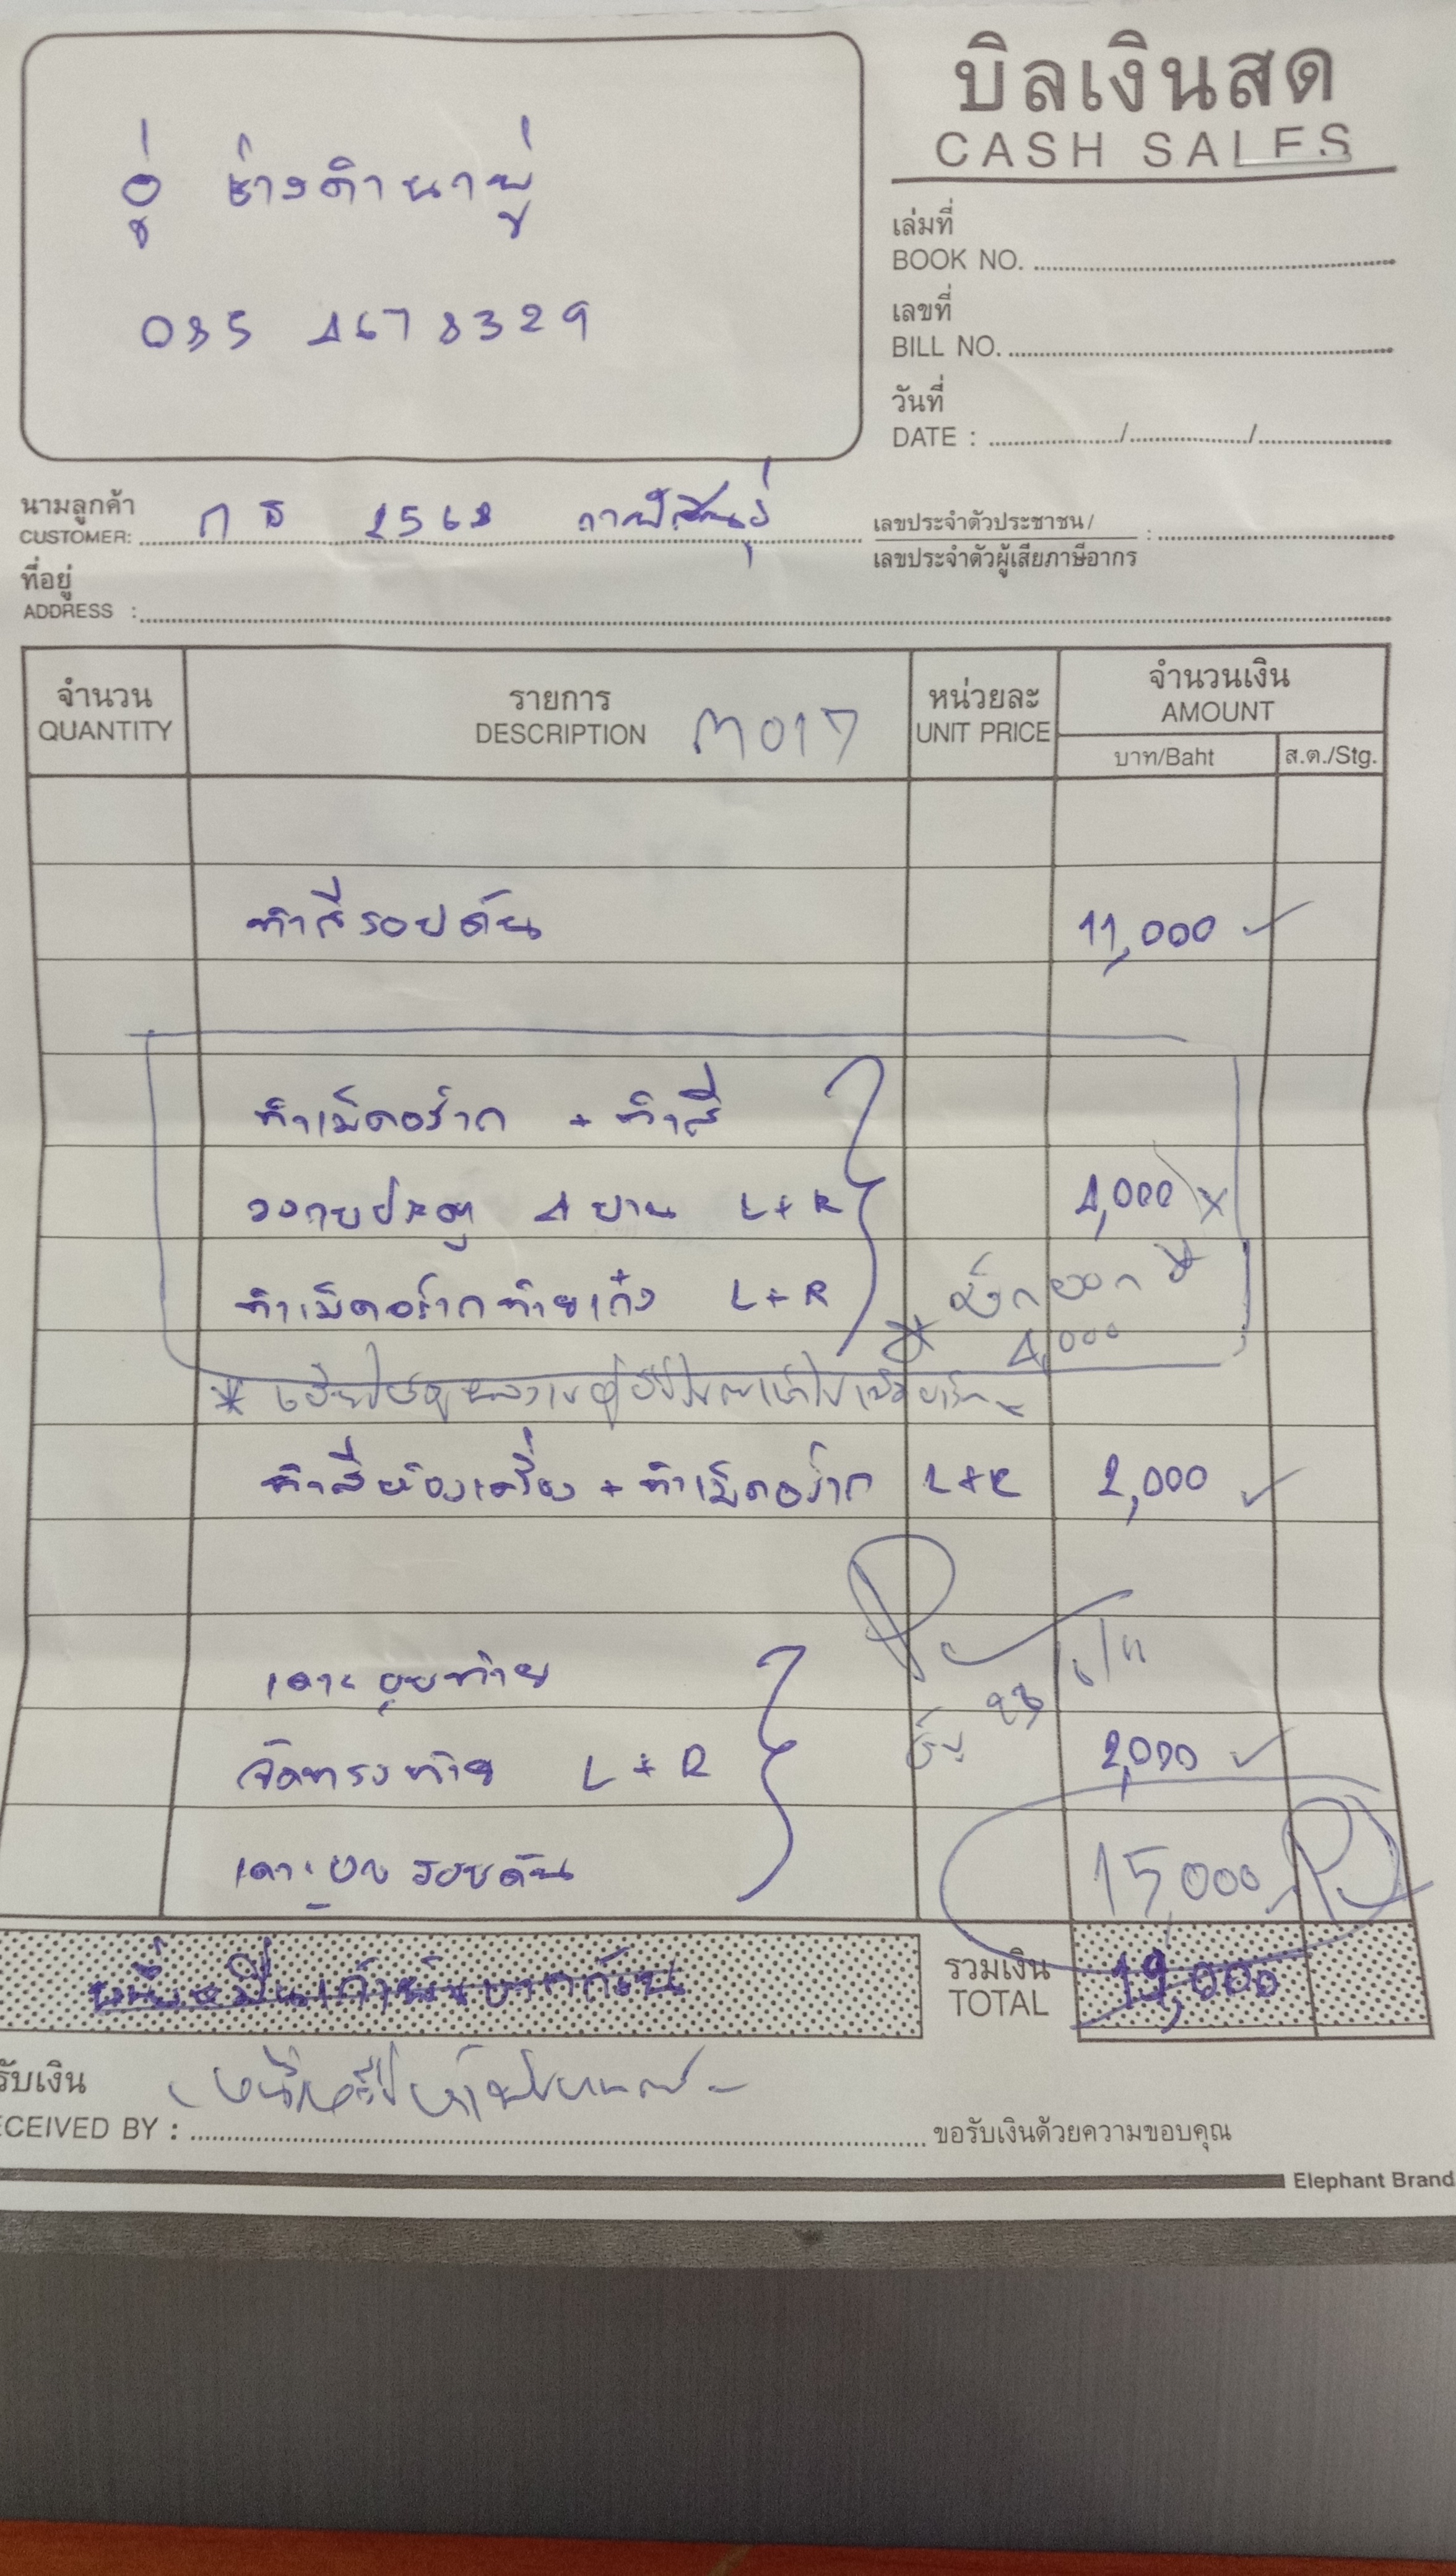 บิลเงินสด
CASH SALES
อู่ ช่างดำนาพู่
085 4678329
เล่มที่
BOOK NO.
เลขที่
BILL NO.
วันที่
DATE : / /
นามลูกค้า
CUSTOMER: กธ 2568 กาฬสินธุ์
เลขประจำตัวประชาชน/
เลขประจำตัวผู้เสียภาษีอากร :
ที่อยู่
ADDRESS :
จำนวน
QUANTITY
รายการ
DESCRIPTION M017
หน่วยละ
UNIT PRICE
จำนวนเงิน
AMOUNT
บาท/Baht
ส.ต./Stg.
ทำสีรอบคัน 11,000
ทำเม็ดอร์าก + ทำสี
วงกบประตู 4 บาน L+R 4,000 X
ทำเม็ดอร์ากท้ายเก๋ง L+R * หักออก *
4,000
*
ทำสีห้องเครื่อง + ทำเม็ดอร์าก L+R 2,000
เคาะ ท้าย
จัดทรงท้าย L+R 2,000
เคาะ รอบคัน 15,000
หนึ่งหมื่นเก้าพันบาทถ้วน
รวมเงิน
TOTAL 19,000
รับเงิน
CEIVED BY : หนึ่งหมื่นห้าพันบาทถ้วน
ขอรับเงินด้วยความขอบคุณ
Elephant Brand